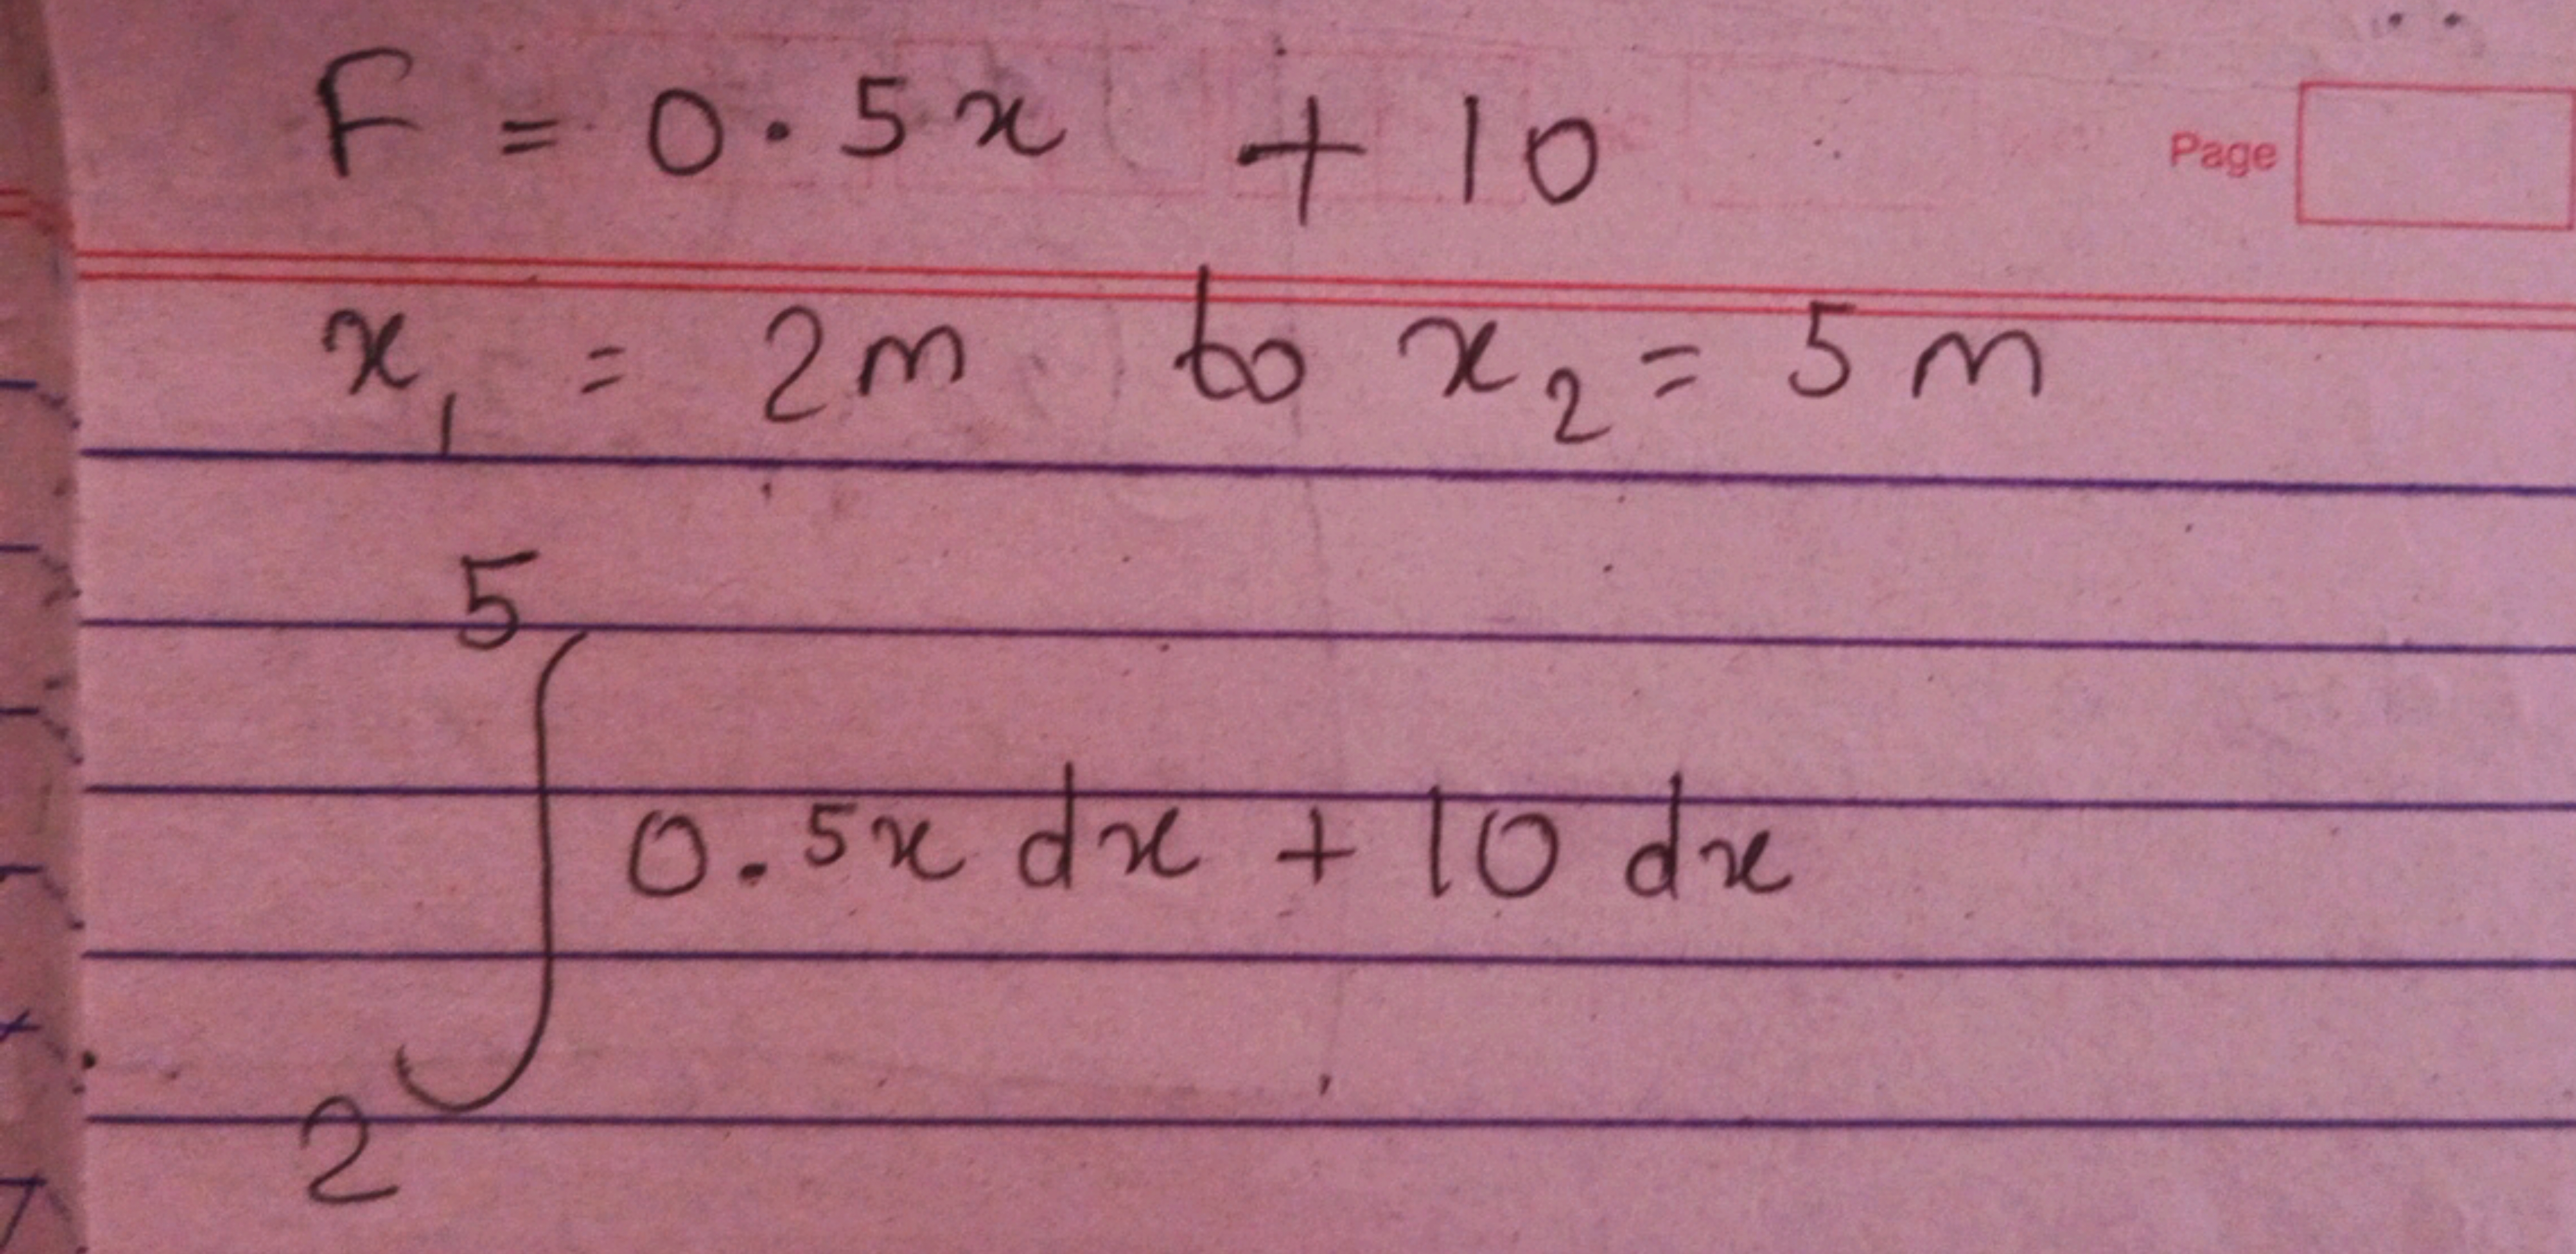 F = 0.5x + 10
Page
x₁ = 2m to x₂ = 5m
5
∫ 0.5x dx + 10 dx
2